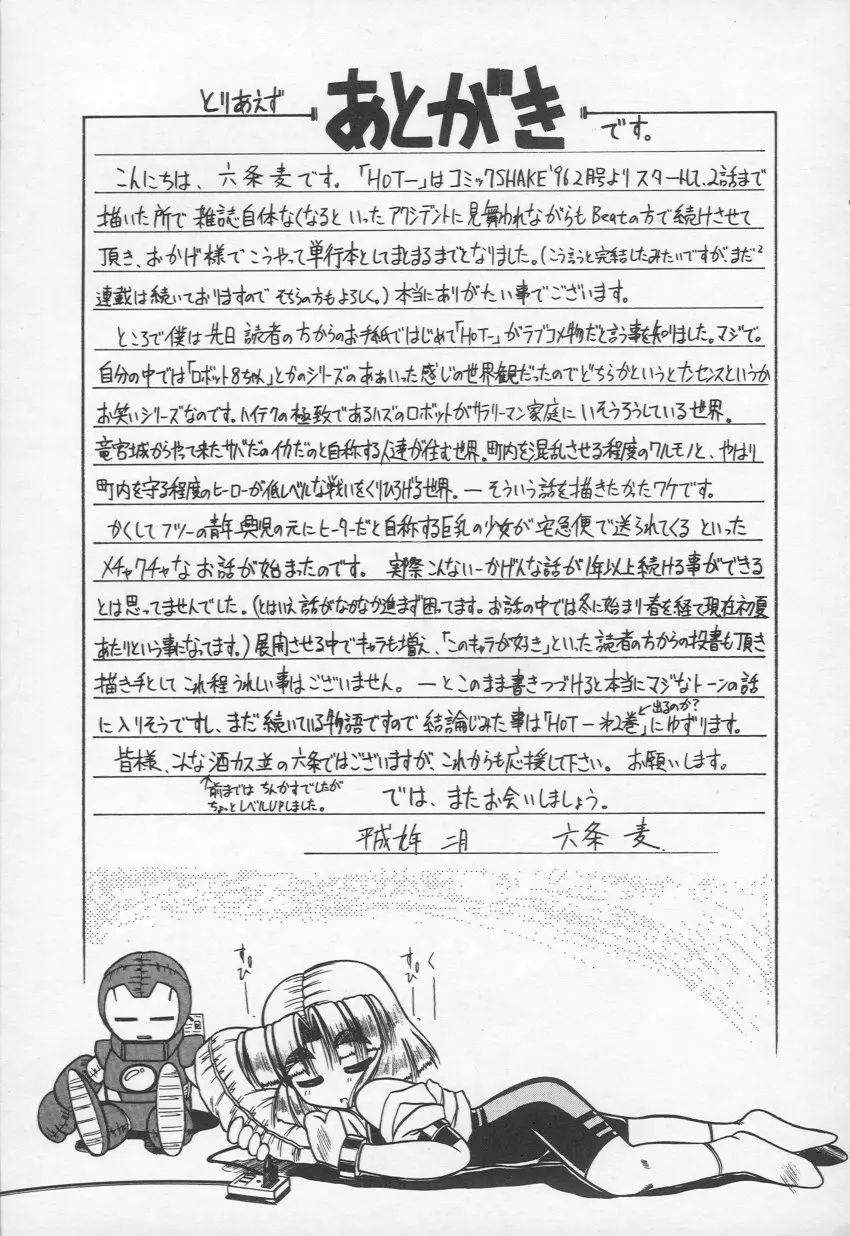 とりあえず
あとがき
です。
こんにちは、六条麦です。「HOTー」はコミックSHAKE'96 2月号よりスタートして、2話まで
描いた所で雑誌自体なくなるといったアクシデントに見舞われながらもBeatの方で続けさせて
頂き、おかげ様でこうやって単行本としてまとまるまでとなりました。(こう言うと完結したみたいですがまだ²
連載は続いておりますのでそちらの方もよろしく。)本当にありがたい事でございます。
ところで僕は先日読者の方からのお手紙ではじめて「HOTー」がラブコメ物だと言う事を知りました。マジで。
自分の中では「ロボット8ちゃん」とかのシリーズのああいった感じの世界観だったのでどちらかというとナンセンスというか
お笑いシリーズなのです。ハイテクの極致であるハズのロボットがサラリーマン家庭にいそうろうしている世界。
竜宮城からやって来たサバだのイカだのと自称する人達が住む世界。町内を混乱させる程度のワルモノと、やはり
町内を守る程度のヒーローが低レベルな戦いをくりひろげる世界。ーそういう話を描きたかったワケです。
かくしてフツーの青年興児の元にヒーターだと自称する巨乳の少女が宅急便で送られてくるといった
メチャクチャなお話が始まったのです。実際こんないーかげんな話が1年以上続ける事ができる
とは思ってませんでした。(とはいえ話がなかなか進まず困ってます。お話の中では冬に始まり春を経て現在初夏
あたりという事になってます。)展開させる中でキャラも増え、「このキャラが好き」といった読者の方からの投書も頂き
描き手としてこれ程うれしい事はございません。ーとこのまま書きつづけると本当にマジなトーンの話
に入りそうですし、まだ続いている物語ですので結論じみた事は「HOTー第2巻」にゆずります。
出るのか?
皆様、こんな酒カス並の六条ではございますが、これからも応援して下さい。お願いします。
前まではちんかすでしたが
ちょっとレベルUPしました。
では、またお会いしましょう。
平成九年 二月 六条 麦
すぴー
すぴー
く